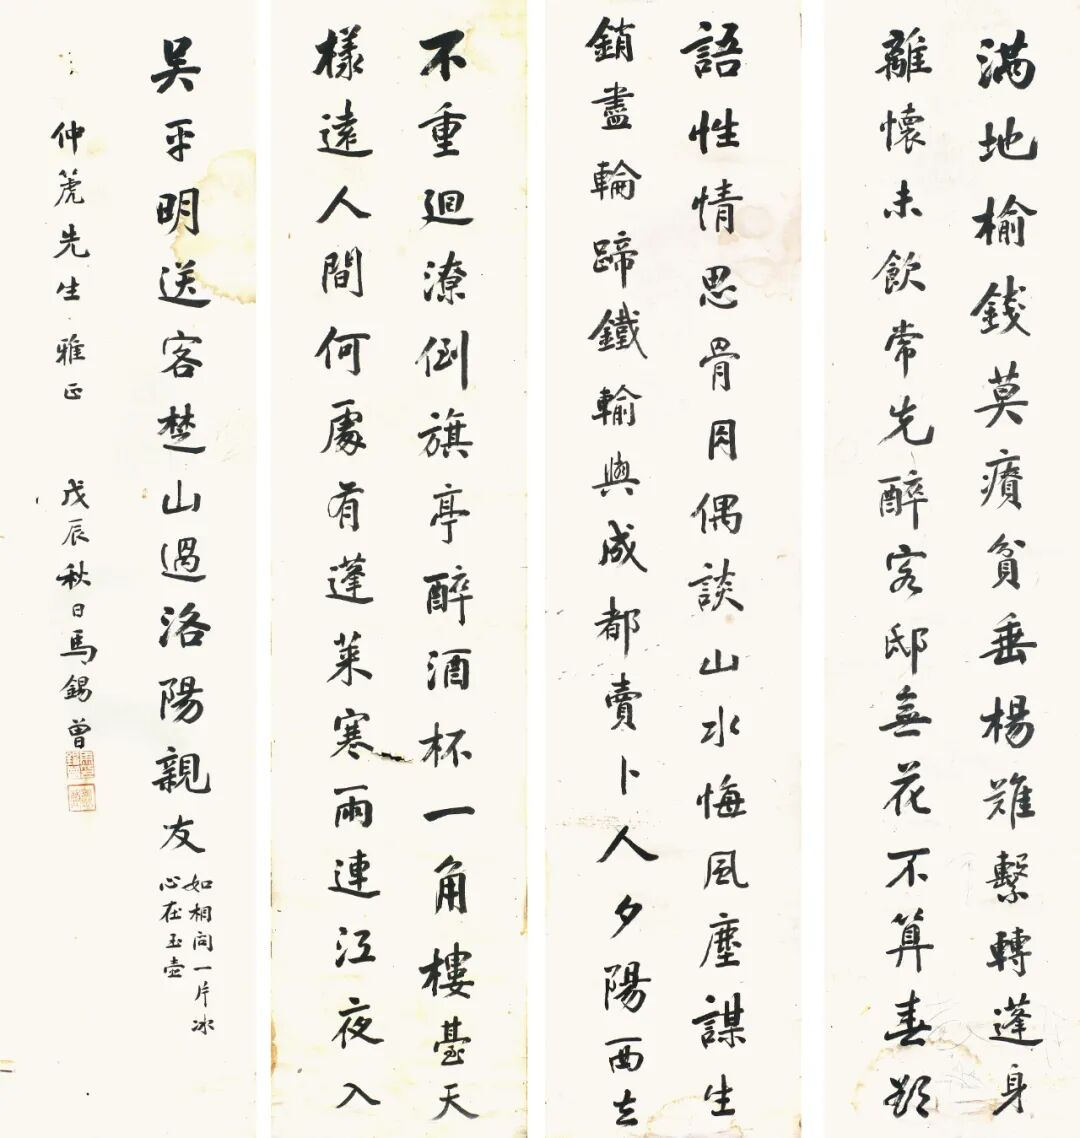 滿地榆錢莫療貧垂楊難繫轉蓬身
離懷未飲常先醉客邸無花不算春欲
語性情思骨肉偶談山水悔風塵謀生
銷盡輪蹄鐵輸與成都賣卜人夕陽西去
不重迴潦倒旗亭醉酒杯一角樓臺天
樣遠人間何處有蓬萊寒雨連江夜入
吴平明送客楚山過洛陽親友
如相問一片冰
心在玉壺
仲箎先生雅正 戊辰秋日馬錫曾